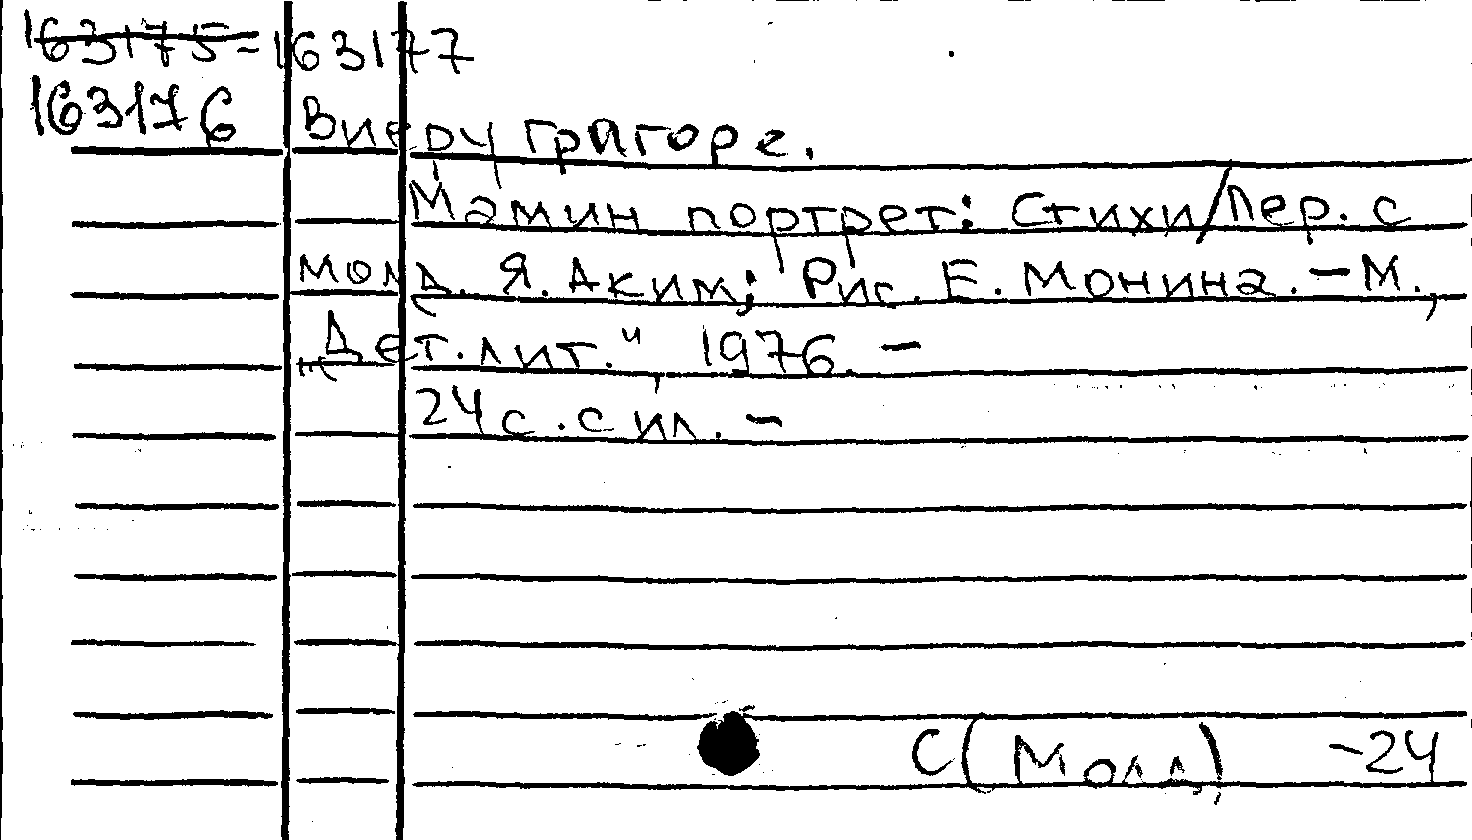 163175-163177
163176 Виеру Григоре.
Мамин портрет: Стихи/Пер. с
молд. Я. Аким; Рис. Е. Монина. - М.,
„Дет. лит.", 1976. -
24 с. с ил. -
С(Молд) -24